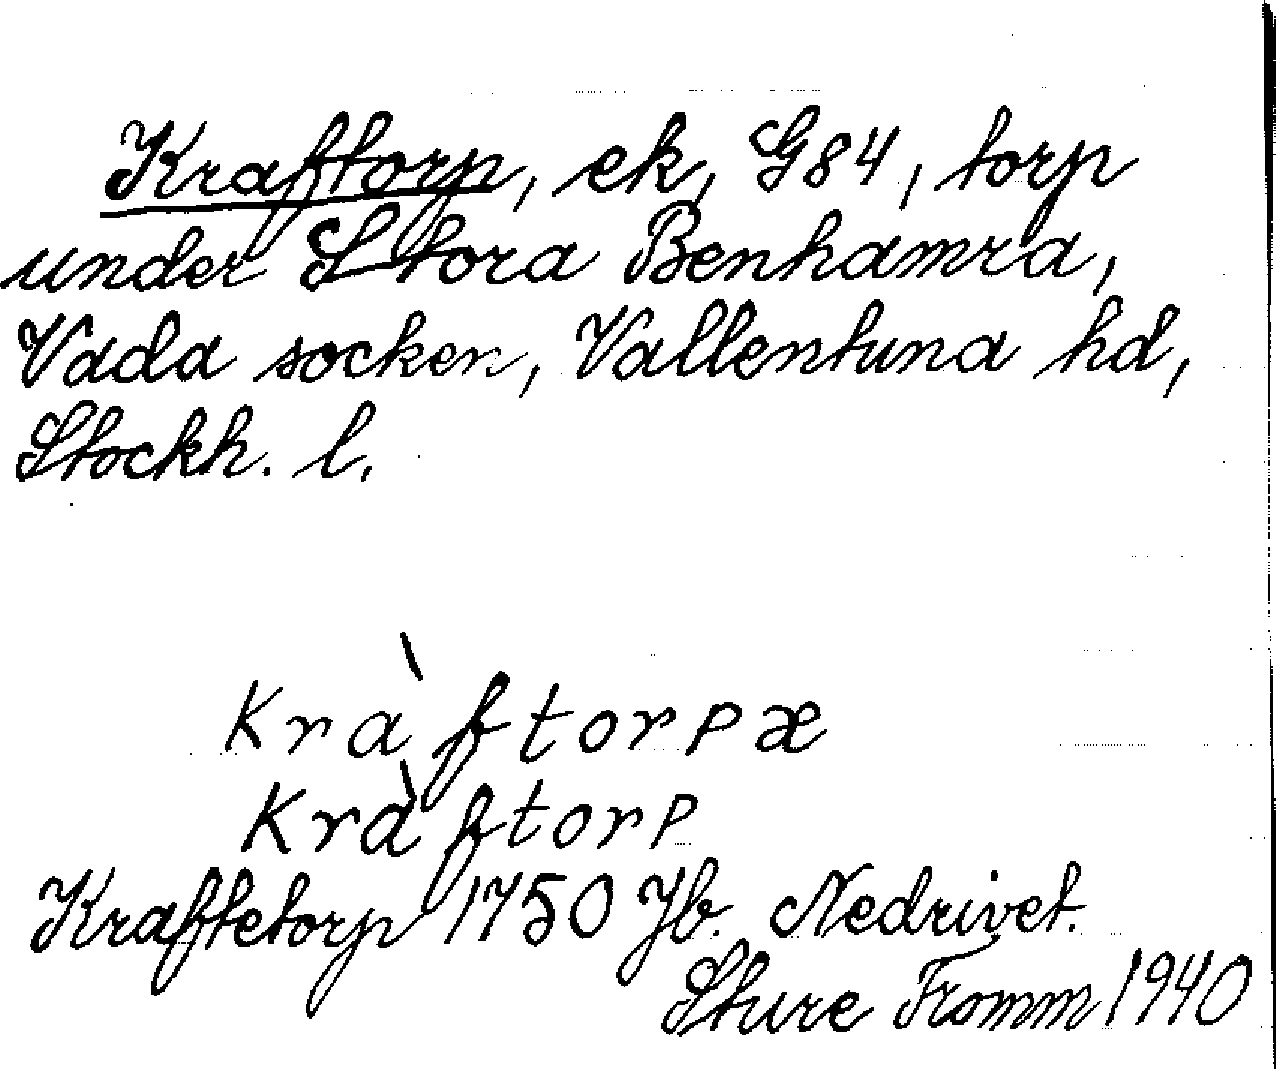 Kraftorp, ek, G84, torp
under Stora Benhamra,
Vada socken, Vallentuna hd,
Stockh. l.
Kràftorpæ
Kràftorp
Kraftetorp 1750 Jb. Nedrivet.
Sture Fromm 1940